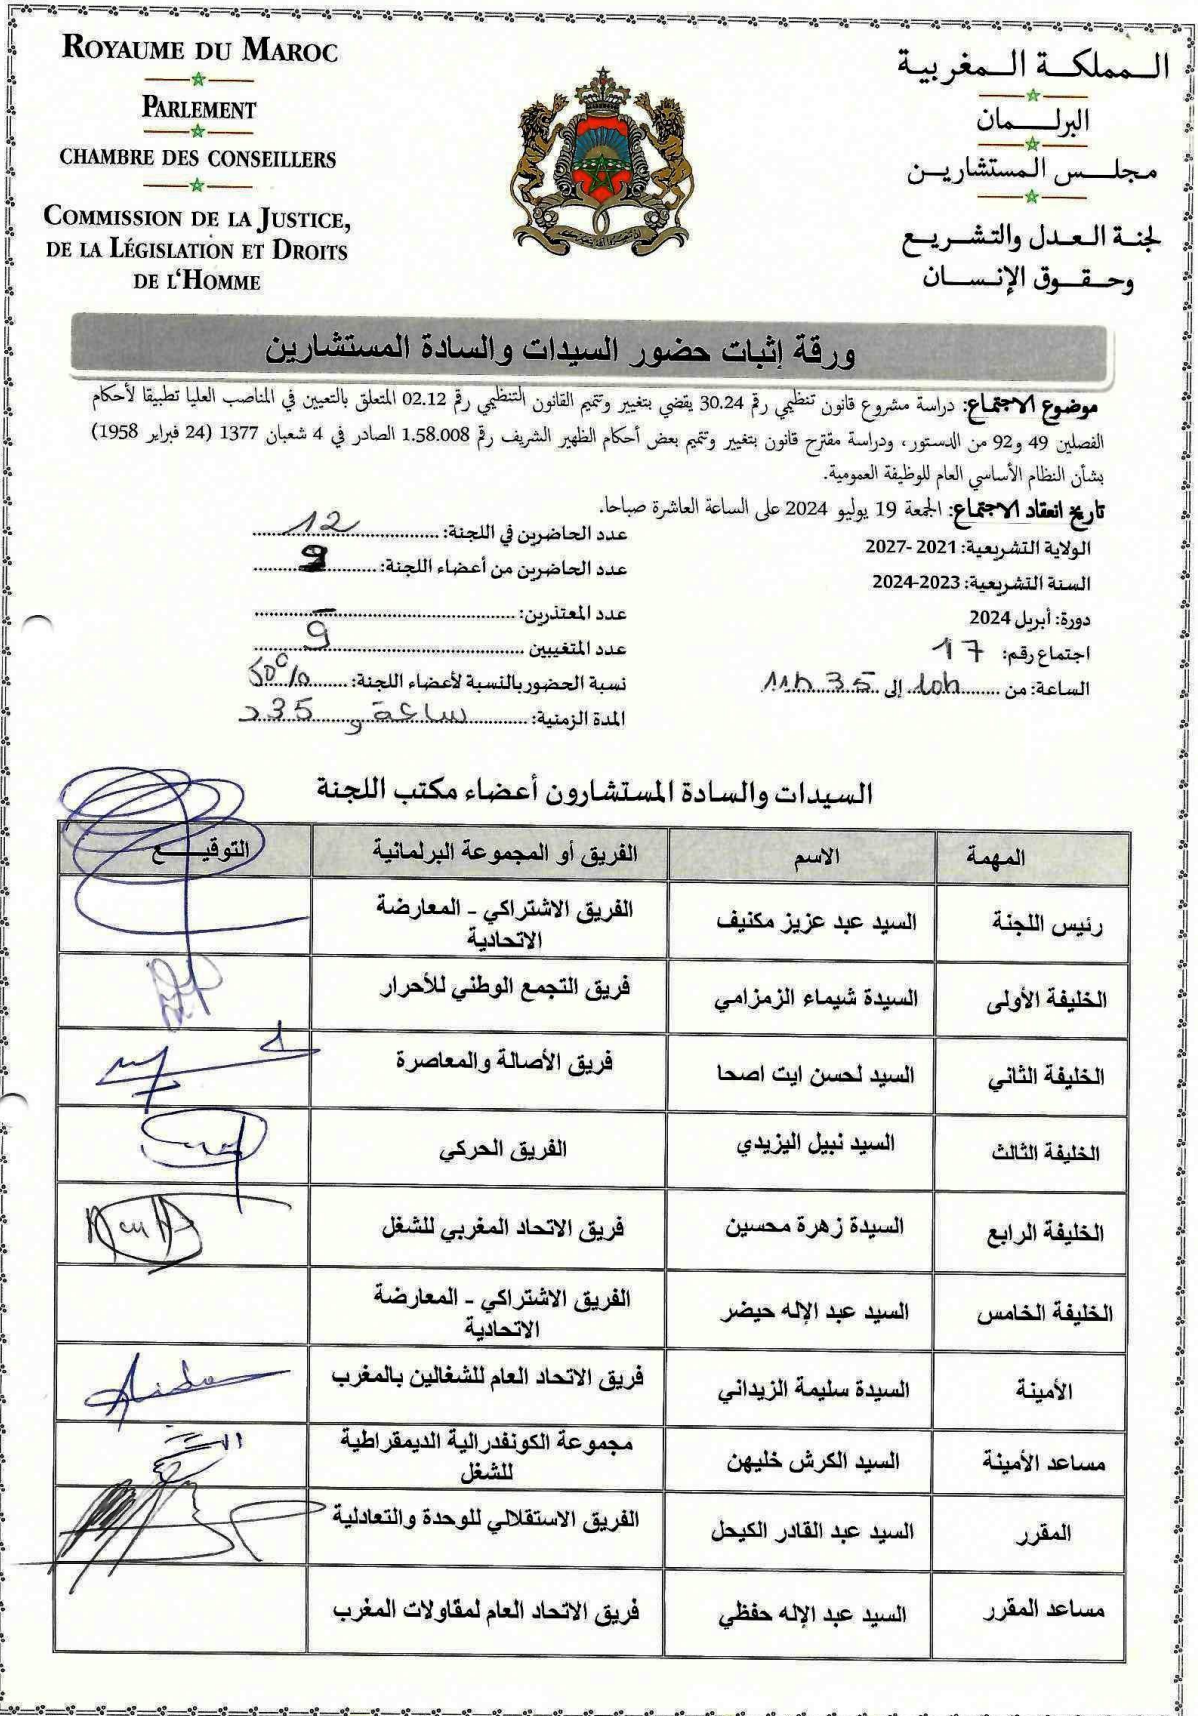 ROYAUME DU MAROC
PARLEMENT
CHAMBRE DES CONSEILLERS
COMMISSION DE LA JUSTICE,
DE LA LÉGISLATION ET DROITS
DE L'HOMME
المملكة المغربية
البرلمان
مجلس المستشارين
لجنة العدل والتشريع
وحقوق الإنسان
ورقة إثبات حضور السيدات والسادة المستشارين
موضوع الاجتماع: دراسة مشروع قانون تنظيمي رقم 30.24 يقضي بتغيير وتتميم القانون التنظيمي رقم 02.12 المتعلق بالتعيين في المناصب العليا تطبيقا لأحكام
الفصلين 49 و92 من الدستور، ودراسة مقترح قانون بتغيير وتتميم بعض أحكام الظهير الشريف رقم 1.58.008 الصادر في 4 شعبان 1377 (24 فبراير 1958)
بشأن النظام الأساسي العام للوظيفة العمومية.
تاريخ انعقاد الاجتماع: الجمعة 19 يوليو 2024 على الساعة العاشرة صباحا.
الولاية التشريعية: 2021-2027
السنة التشريعية: 2023-2024
دورة: أبريل 2024
اجتماع رقم: 17
الساعة: من 10h إلى 11h35
عدد الحاضرين في اللجنة: 12
عدد الحاضرين من أعضاء اللجنة: 9
عدد المعتذرين: –
عدد المتغيبين 9
نسبة الحضور بالنسبة لأعضاء اللجنة: 50%
المدة الزمنية: ساعة و 35 د
السيدات والسادة المستشارون أعضاء مكتب اللجنة
المهمة الاسم الفريق أو المجموعة البرلمانية التوقيع
رئيس اللجنة السيد عبد عزيز مكنيف الفريق الاشتراكي - المعارضة
الاتحادية
الخليفة الأولى السيدة شيماء الزمزامي فريق التجمع الوطني للأحرار
الخليفة الثاني السيد لحسن ايت اصحا فريق الأصالة والمعاصرة
الخليفة الثالث السيد نبيل اليزيدي الفريق الحركي
الخليفة الرابع السيدة زهرة محسين فريق الاتحاد المغربي للشغل
الخليفة الخامس السيد عبد الإله حيضر الفريق الاشتراكي - المعارضة
الاتحادية
الأمينة السيدة سليمة الزيداني فريق الاتحاد العام للشغالين بالمغرب
مساعد الأمينة السيد الكرش خليهن مجموعة الكونفدرالية الديمقراطية
للشغل
المقرر السيد عبد القادر الكيحل الفريق الاستقلالي للوحدة والتعادلية
مساعد المقرر السيد عبد الإله حفظي فريق الاتحاد العام لمقاولات المغرب